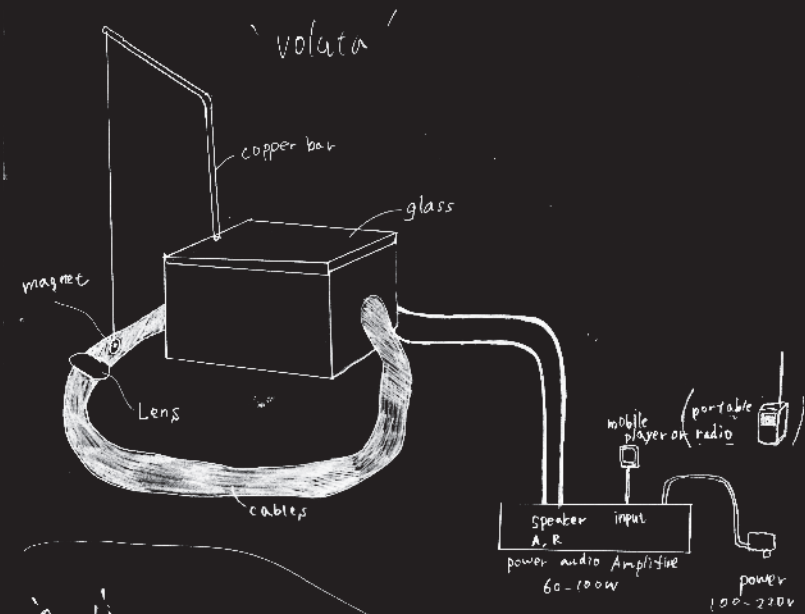 'voluta'
copper bar
glass
magnet
Lens
cables
mobile
player or
(portable
radio)
speaker
A, R
input
power audio Amplifire
60-100W
power
100-220V